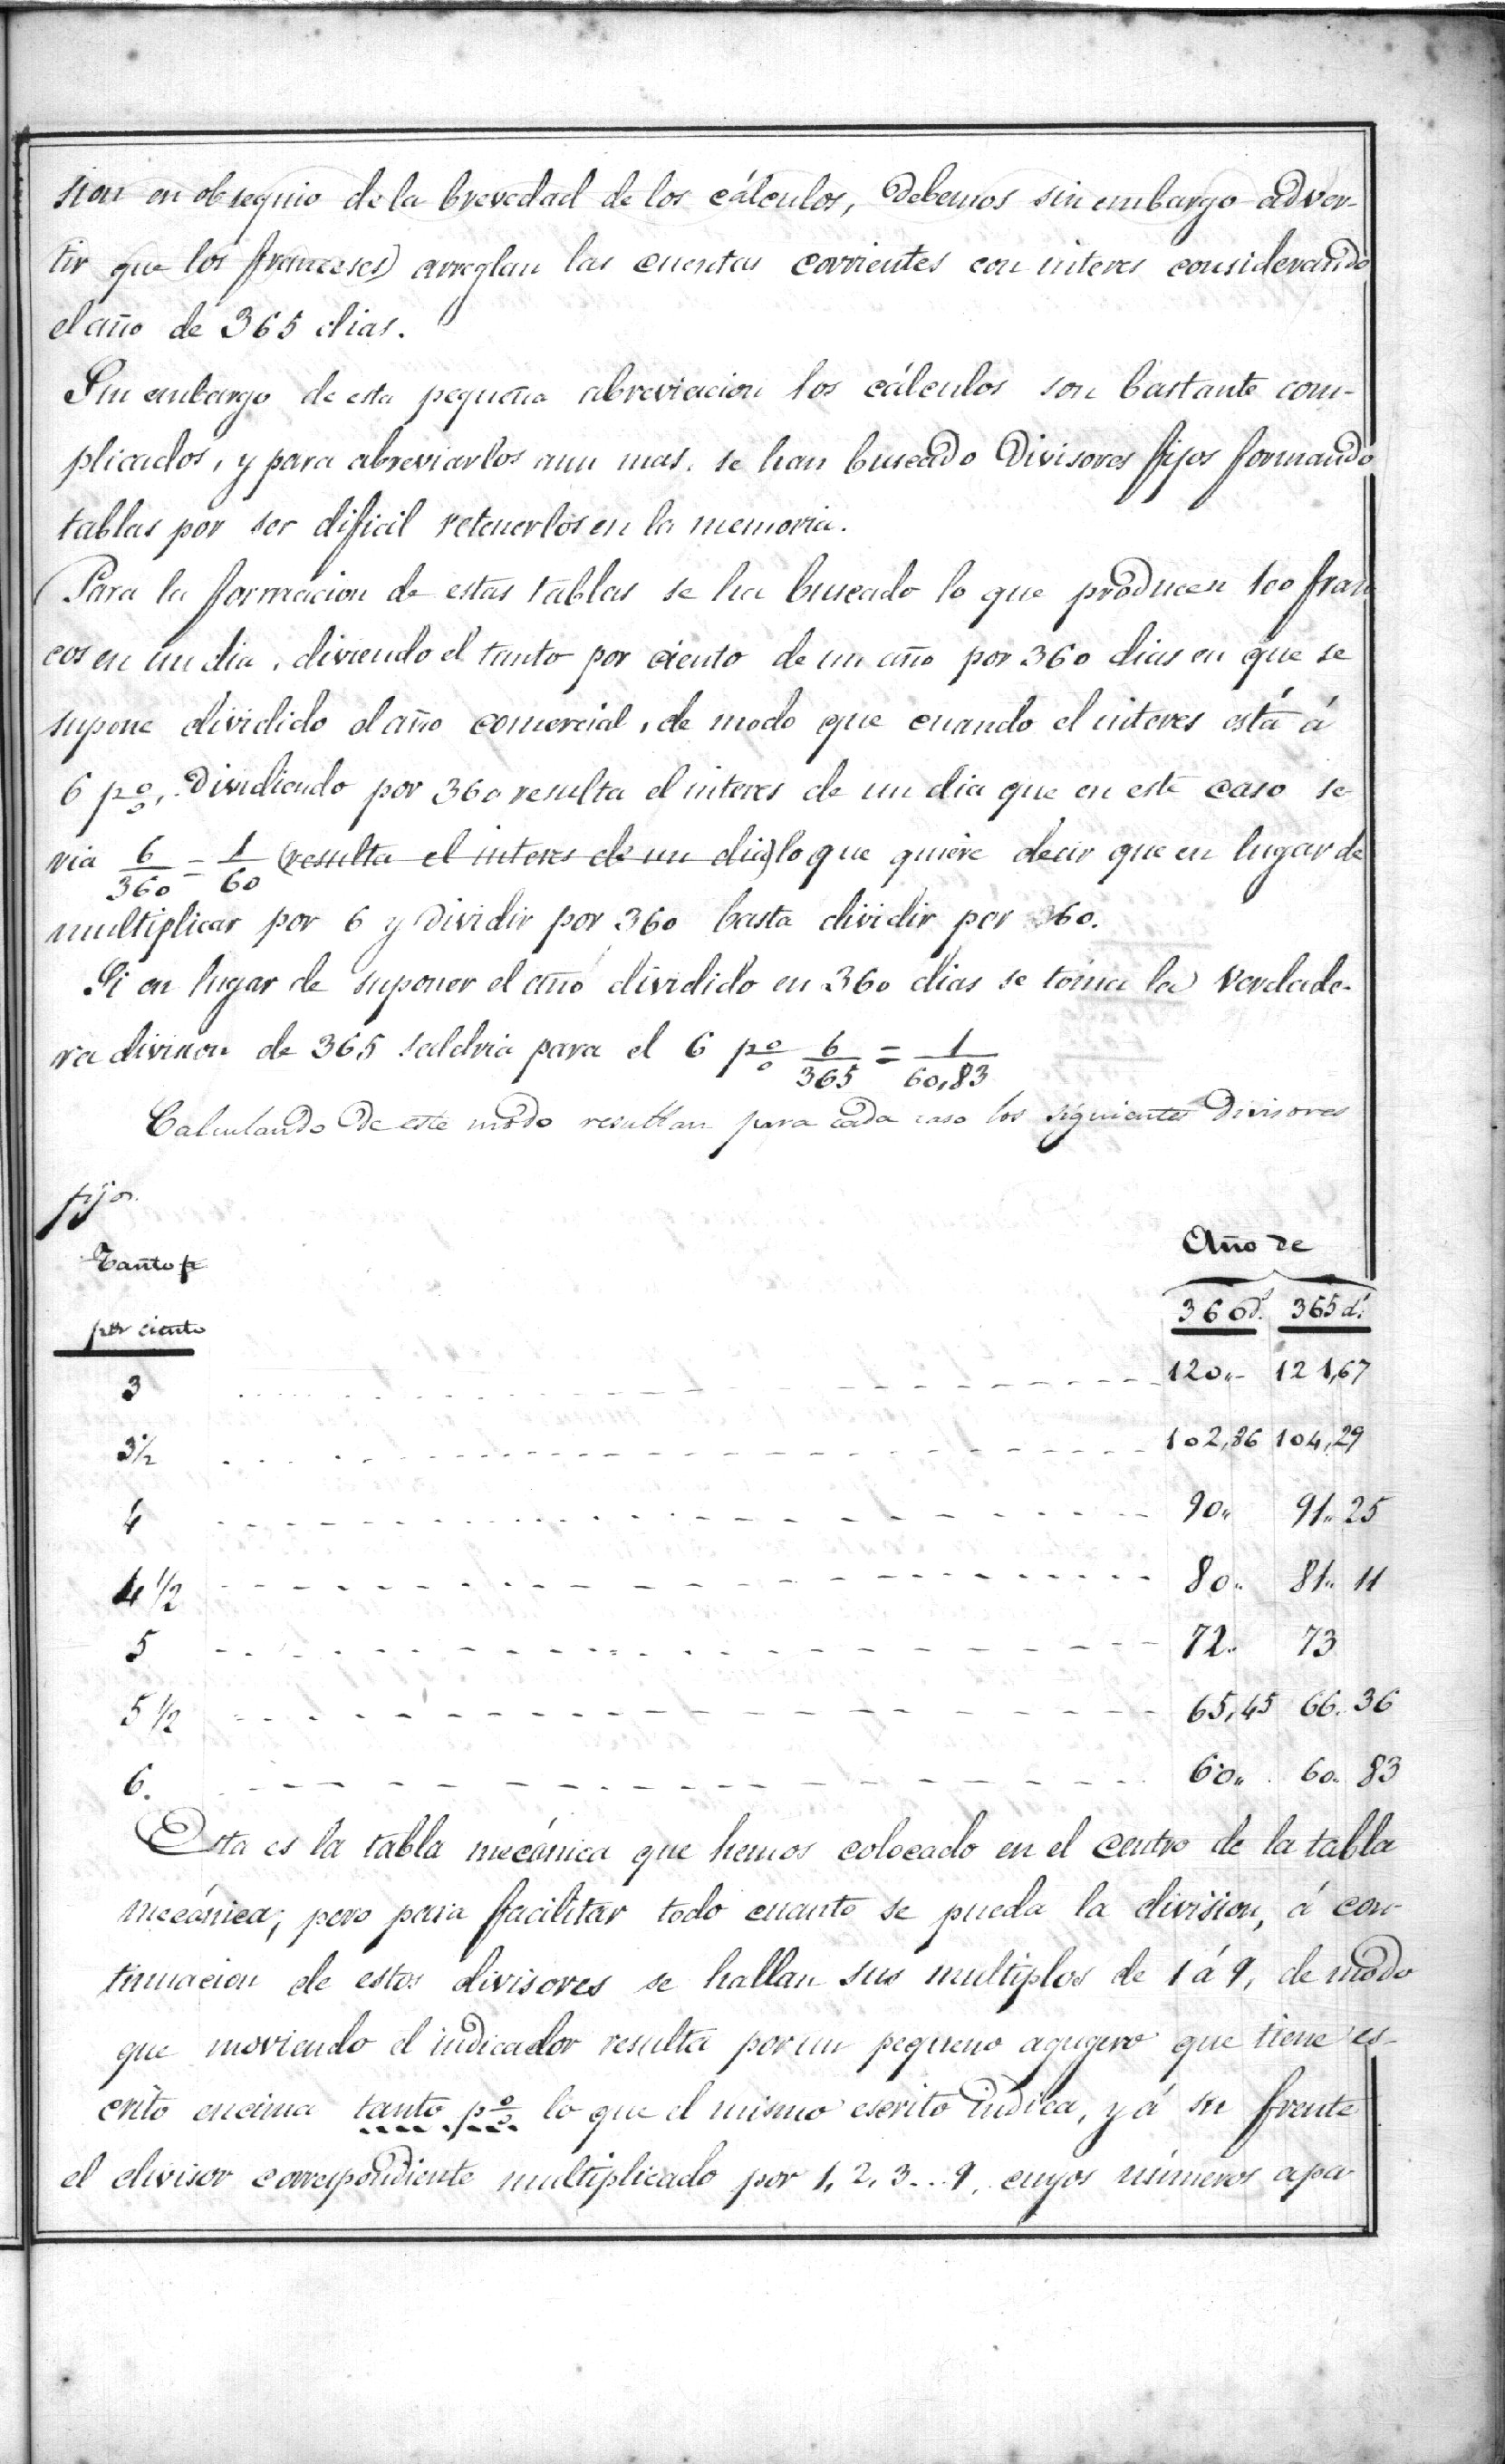 sion en obsequio de la brevedad de los cálculos, Debemos sin embargo adver-
tir que los franceses) arreglan las cuentas corrientes con interes considerando
el año de 365 dias.
Sin embargo de esta pequeña abreviacion los cálculos son bastante com-
plicados, y para abreviarlos aun mas, se han buscado Divisores fijos formando
tablas por ser dificil retenerlos en la memoria.
Para la formacion de estas tablas se ha buscado lo que producen 100 fran
cos en un dia, diviendo el tanto por ciento de un año por 360 dias en que se
supone dividido el año comercial, de modo que cuando el interes está á
6 p%, Dividiendo por 360 resulta el interes de un dia que en este caso se
ria 6/360 = 1/60 (resulta el interes de un dia) lo que quiere decir que en lugar de
multiplicar por 6 y Dividir por 360 basta dividir por 360.
Si en lugar de suponer el año dividido en 360 dias se toma la verdade-
ra division de 365 saldria para el 6 p% 6/365 = 1/60,83
Calculando De este modo resultan para cada caso los siguientes Divisores
fijos.
Tanto p Año de
por ciento 360 d.s 365 d.s
3 120,, 121,67
3 1/2 102,86 104,29
4 90,, 91,, 25
4 1/2 80,, 81,, 11
5 72,, 73
5 1/2 65,45 66,, 36
6. 60,, 60,, 83
Esta es la tabla mecánica que hemos colocado en el centro de la tabla
mecánica; pero para facilitar todo cuanto se pueda la division, á con-
tinuacion de estos divisores se hallan sus multiplos de 1 á 9, de modo
que moviendo el indicador resulta por un pequeno agugero que tiene es-
crito encima tanto p% lo que el mismo escrito indica, y á su frente
el divisor correspondiente multiplicado por 1, 2, 3... 9, cuyos números apa-